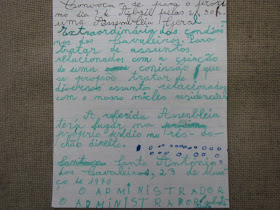 Convoca-se para o próxi
mo dia 26 Abril pelas 21,30h
uma Assembleia Geral
Extraordinária dos condómi
nos dos Cavaleiros para
tratar de assuntos
relacionados com a criação
de uma comissão que
se propõe tratar de
diversos assuntos relacionados
com o nosso núcleo residencial
A referida Assembleia
terá lugar no
próprio prédio no Três-
chão direito.
Santo António
dos Cavaleiros, 23 de
de 1990
O ADMINISTRADOR
O ADMINISTRADOR